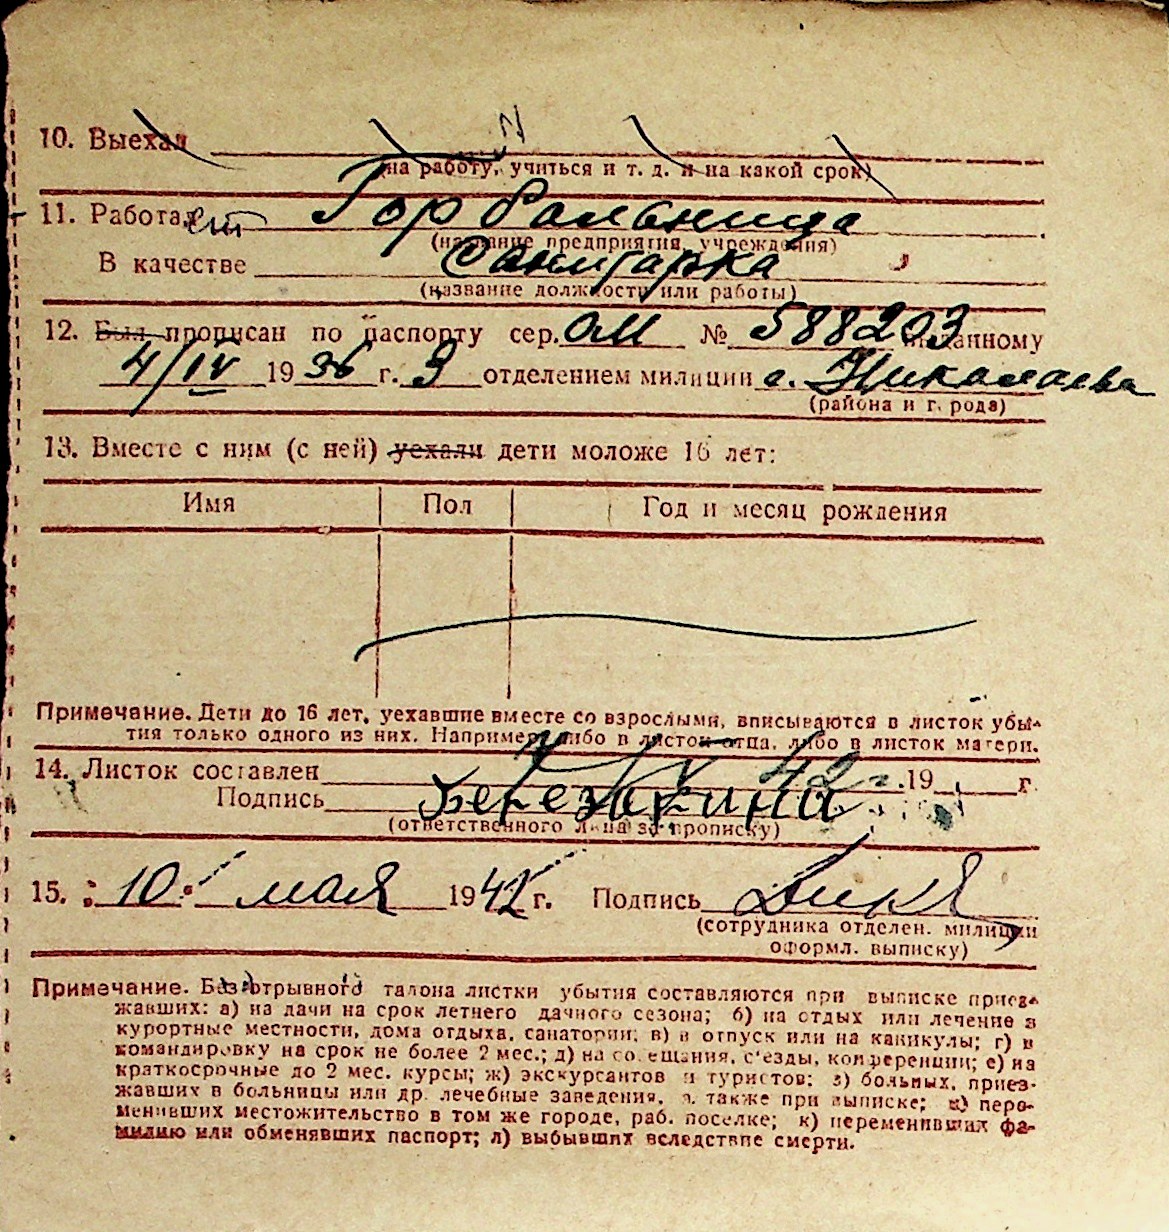 10. Выехал
(на работу, учиться и т. д. и на какой срок)
11. Работает Гор больница
(название предприятия, учреждения)
В качестве Санитарка
(название должности или работы)
12. Был прописан по паспорту сер. ОМ № 588203 выданному
4/IV 1936 г. 3 отделением милиции г. Николаева
(района и г. рода)
13. Вместе с ним (с ней) уехали дети моложе 16 лет:
Имя Пол Год и месяц рождения
Примечание. Дети до 16 лет, уехавшие вместе со взрослыми, вписываются в листок убы-
тия только одного из них. Например, либо в листок отца, либо в листок матери.
14. Листок составлен 42 г. 19 г.
Подпись
(ответственного лица за прописку)
15. 10 мая 1942 г. Подпись
(сотрудника отделен. милиции
оформл. выписку)
Примечание. Без отрывного талона листки убытия составляются при выписке приез-
жавших: а) на дачи на срок летнего дачного сезона; б) на отдых или лечение в
курортные местности, дома отдыха, санатории; в) в отпуск или на каникулы; г) в
командировку на срок не более 2 мес.; д) на совещания, с'езды, конференции; е) на
краткосрочные до 2 мес. курсы; ж) экскурсантов и туристов; з) больных, приез-
жавших в больницы или др. лечебные заведения, а также при выписке; и) пере-
менивших местожительство в том же городе, раб. поселке; к) переменивших фа-
милию или обменявших паспорт; л) выбывших вследствие смерти.